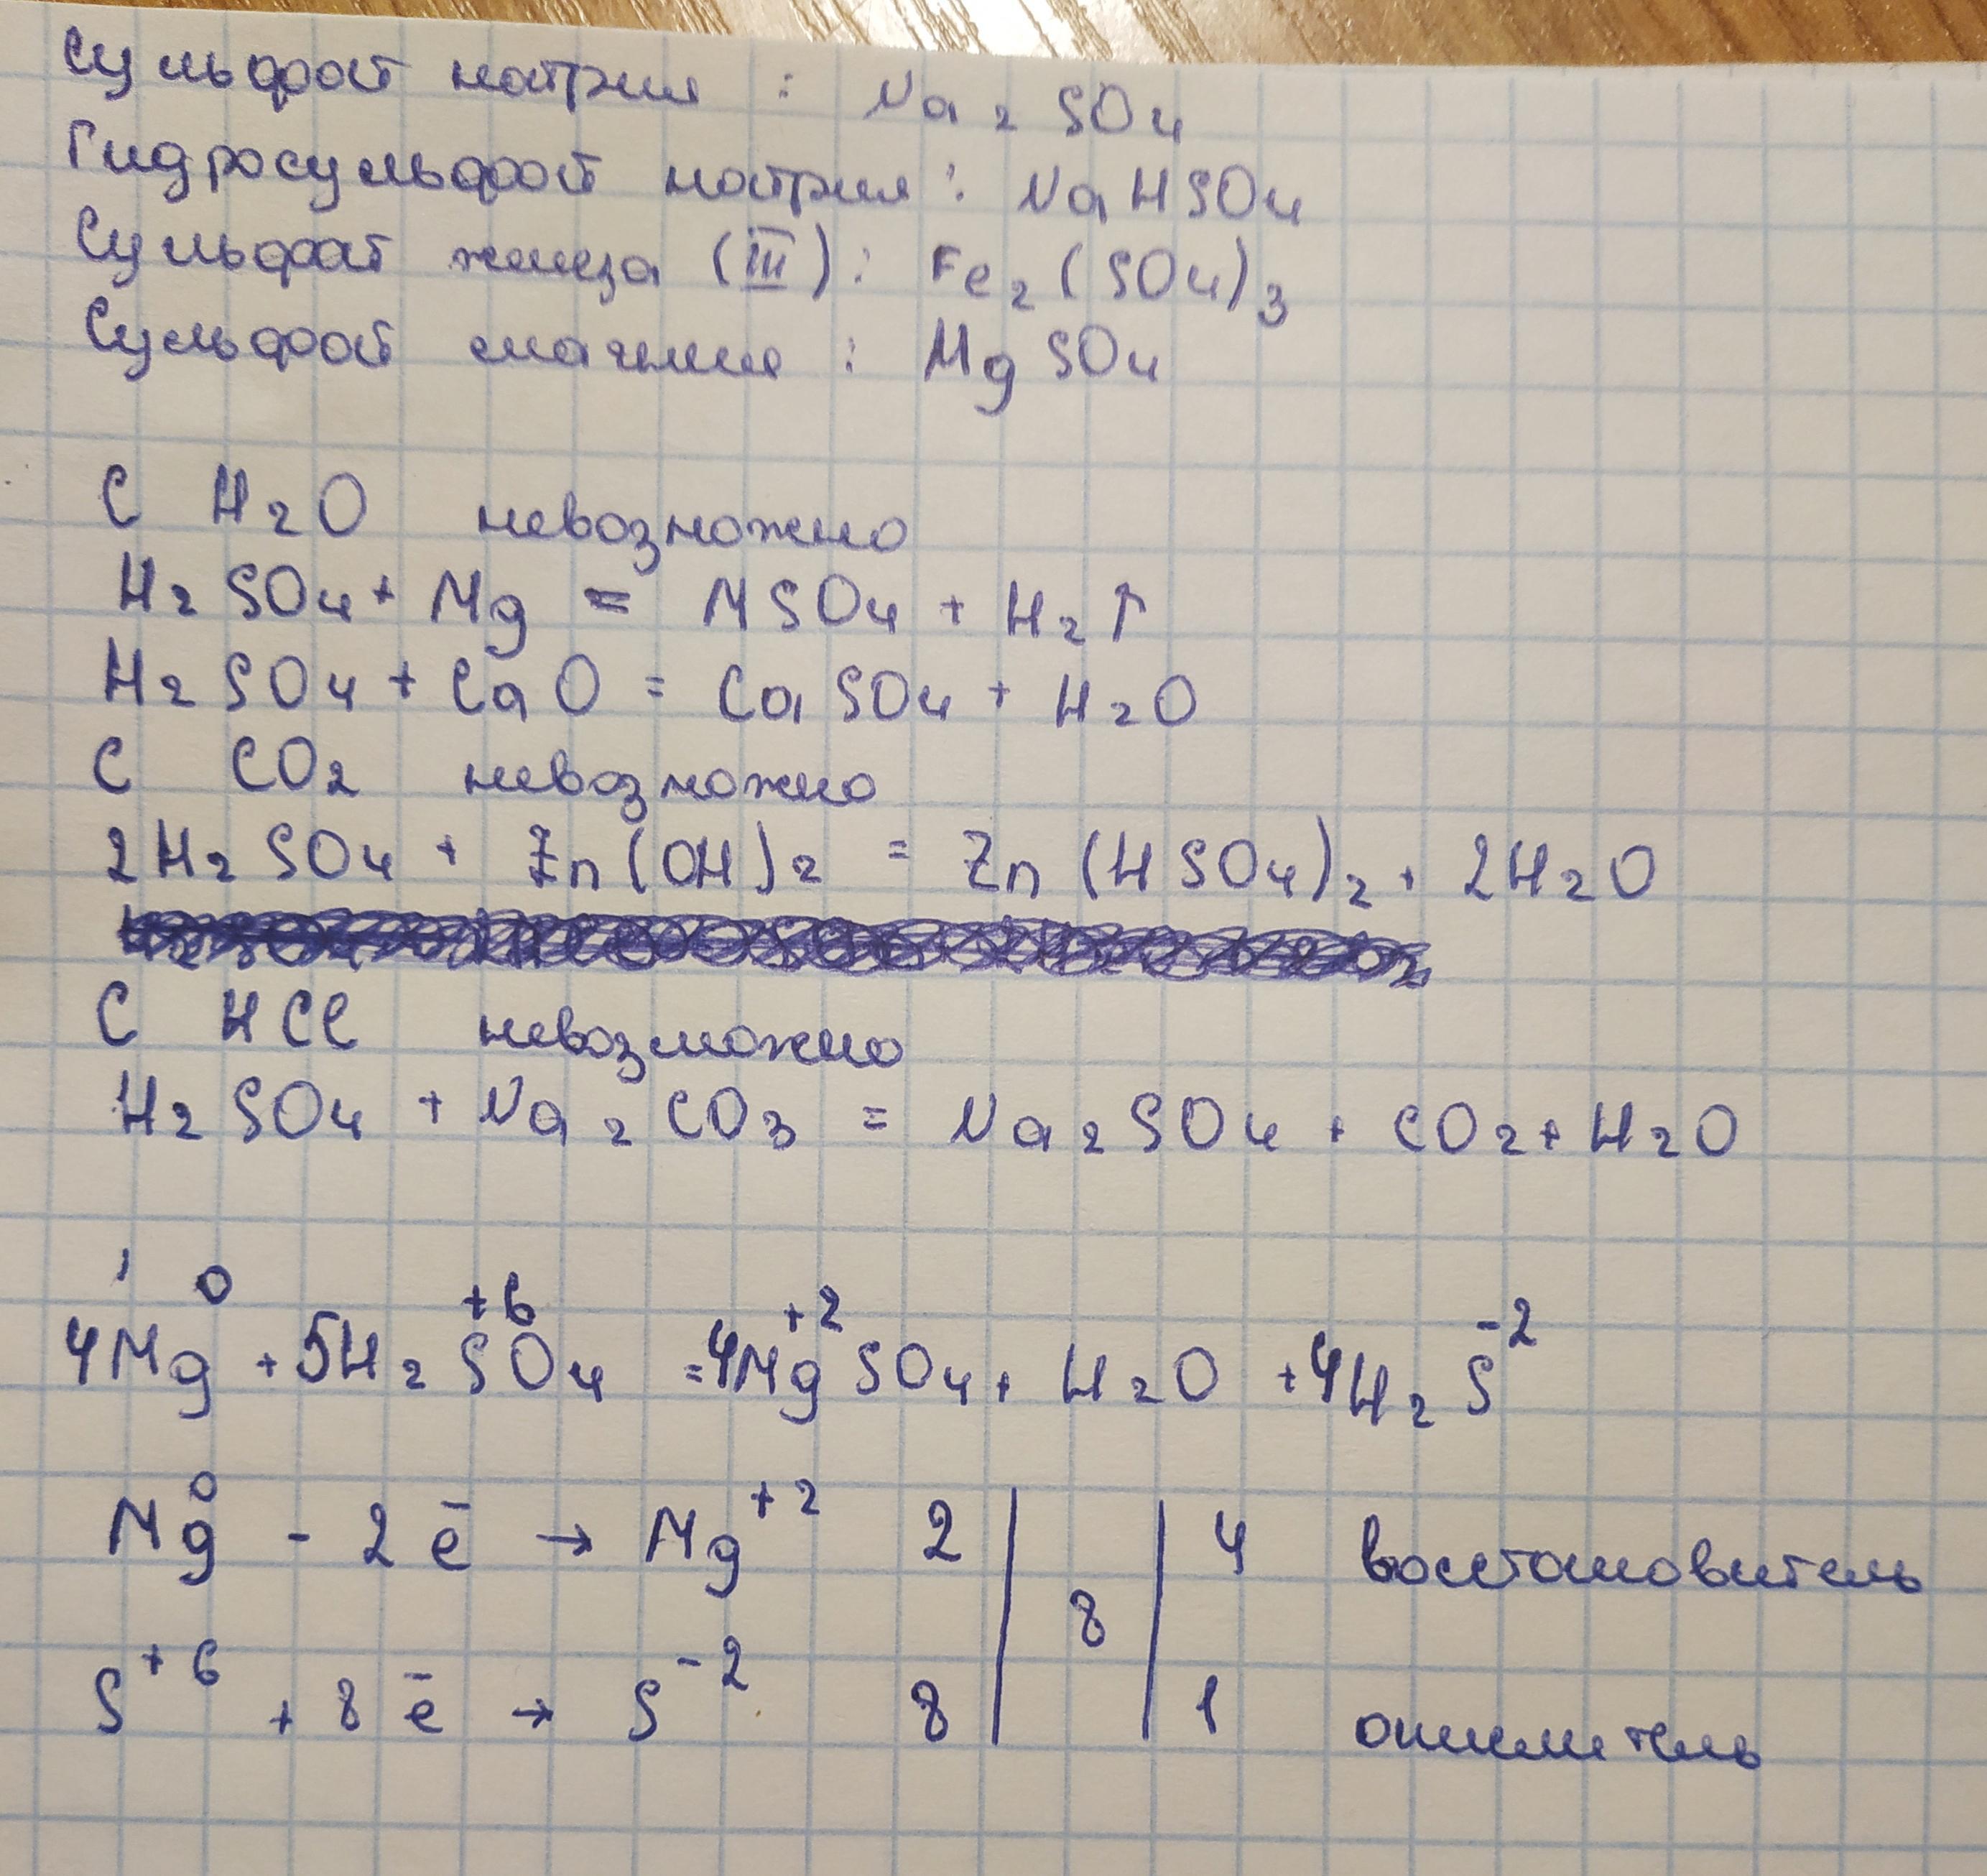 Сульфат натрия : Na2SO4
Гидросульфат натрия : NaHSO4
Сульфат железа (III) : Fe2(SO4)3
Сульфат магния : MgSO4
С H2O невозможно
H2SO4 + Mg = MSO4 + H2↑
H2SO4 + CaO = CaSO4 + H2O
С CO2 невозможно
2H2SO4 + Zn(OH)2 = Zn(HSO4)2 + 2H2O
С HCl невозможно
H2SO4 + Na2CO3 = Na2SO4 + CO2 + H2O
0 +6 +2 -2
4Mg + 5H2SO4 = 4MgSO4 + H2O + 4H2S
Mg0 - 2ē → Mg+2 2 | | 4 восстановитель
8
S+6 + 8ē → S-2 8 | | 1 окислитель